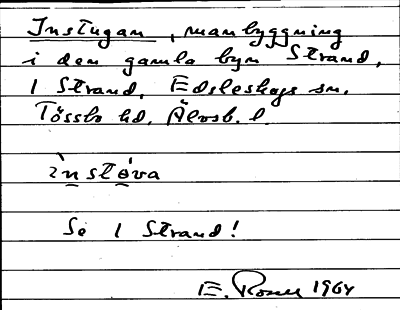 Instugan, manbyggning
i den gamla byn Strand,
1 Strand. Edsleskogs sn.
Tössbo hd. Älvsb. l.
ìnstòva
Se 1 Strand!
E. Rosell 1964